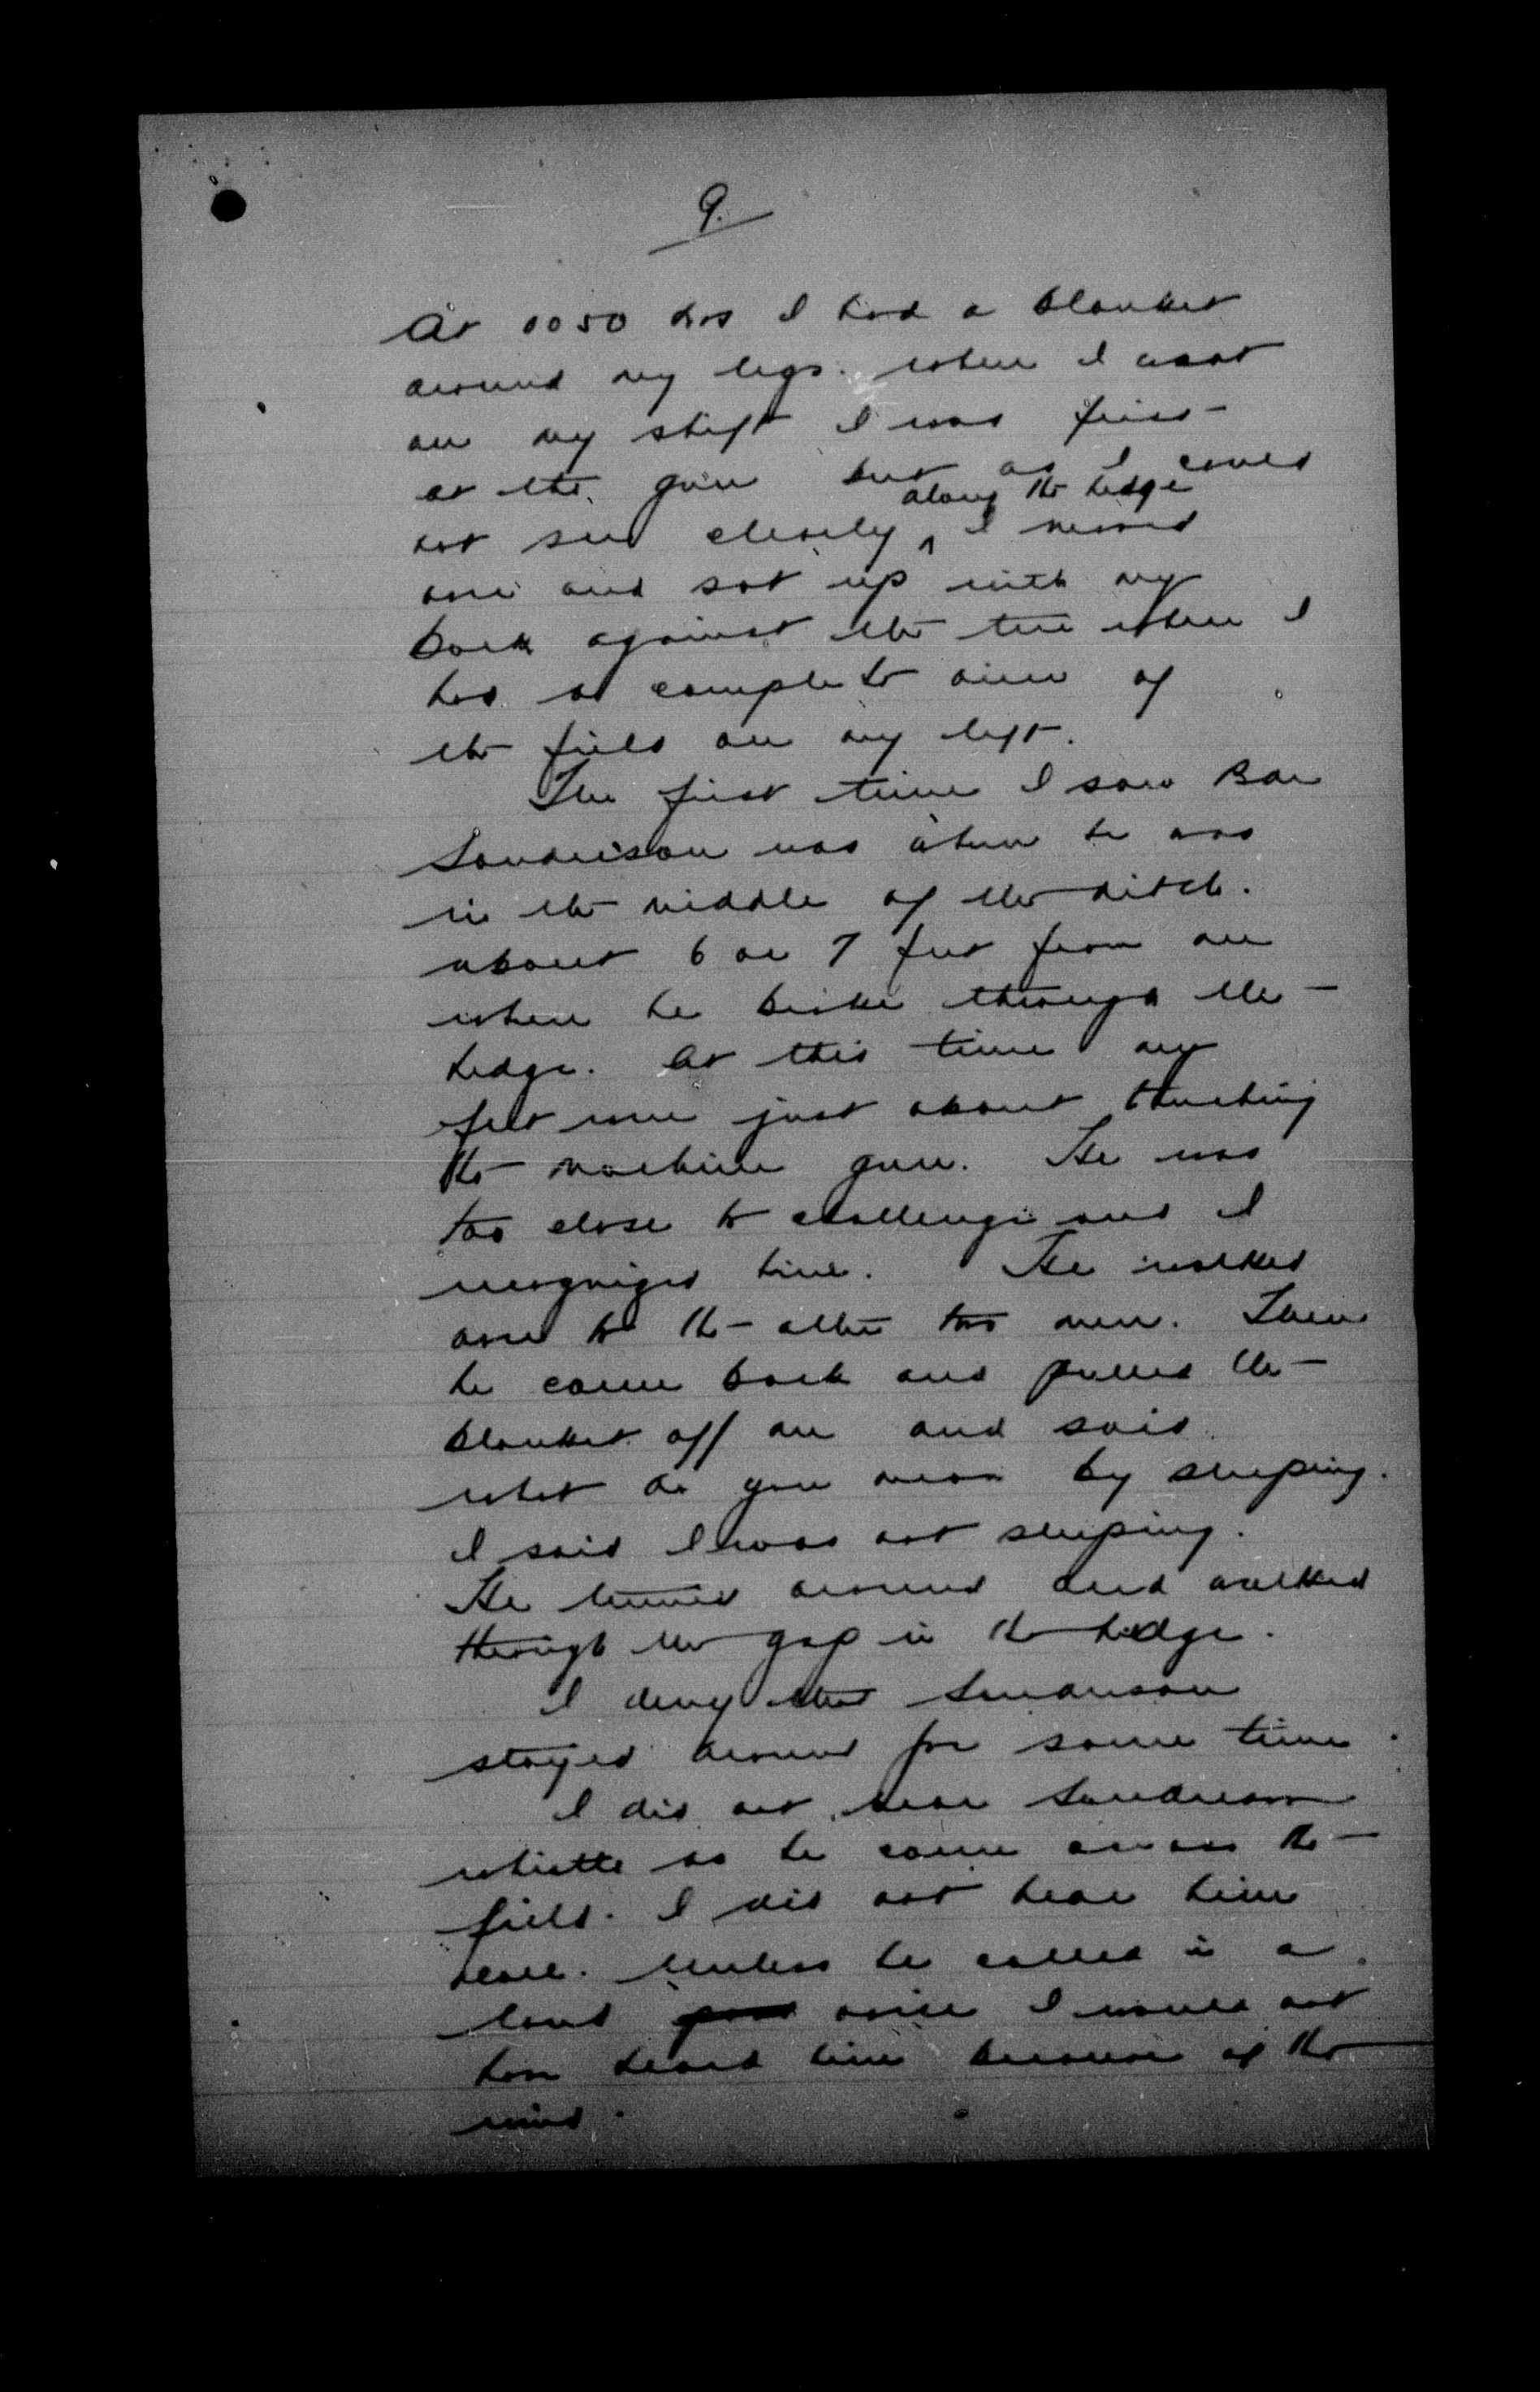 9.
At 0050 hrs I had a blanket
around my legs. When I went
on my shift I was first
at the gun but as I could
not see clearly along the hedge I moved
over and sat up with my
back against the tree where I
had a complete view of
the field on my left.
The first time I saw
Sanderson was when he was
in the middle of the ditch.
about 6 or 7 feet from me
where he broke through the
hedge. At this time my
feet were just about touching
the machine gun. He was
too close to challenge and I
recognized him. He walked
over to the other two men. Then
he came back and pulled the
blanket off me and said
what do you mean by sleeping.
I said I was not sleeping.
He turned around and walked
through the gap in the hedge.
I deny that Sanderson
stayed around for some time
I did not hear Sanderson
whistle as he came across the
field. I did not hear him
call. Unless he called in a
loud voice I would not
have heard him because of the
wind.